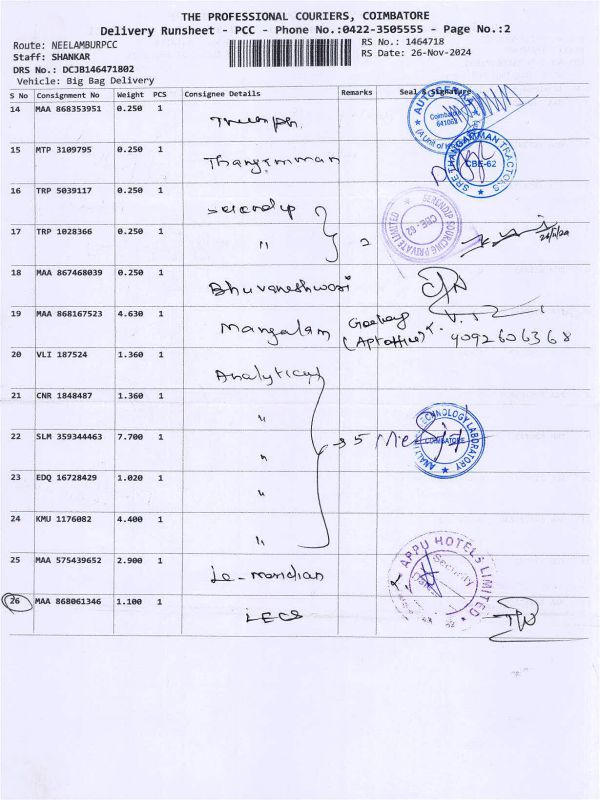 THE PROFESSIONAL COURIERS, COIMBATORE
Delivery Runsheet - PCC - Phone No.:0422-3505555 - Page No.:2
Route: NEELAMBURPCC
RS No.: 1464718
Staff: SHANKAR
RS Date: 26-Nov-2024
DRS No.: DCJB146471802
Vehicle: Big Bag Delivery
S No Consignment No Weight PCS Consignee Details Remarks Seal & Signature
14 MAA 868353951 0.250 1 Triumph
Coimbatore 641062
15 MTP 3109795 0.250 1 Thangamman
SREE THANGAMMAN TRACTORS CBE-62
16 TRP 5039117 0.250 1 Serendip
SERENDIP SOURCING PRIVATE LIMITED CBE-62
17 TRP 1028366 0.250 1 "
18 MAA 867468039 0.250 1 Bhuvaneshwari
19 MAA 868167523 4.630 1 Mangalam
9092606368
20 VLI 187524 1.360 1 Analytical
21 CNR 1848487 1.360 1 "
22 SLM 359344463 7.700 1 " 5
TECHNOLOGY LABORATORY COIMBATORE
23 EDQ 16728429 1.020 1 "
24 KMU 1176082 4.400 1 "
25 MAA 575439652 2.900 1 Le-meridian
APPU HOTELS LIMITED Security
26 MAA 868061346 1.100 1 LECS